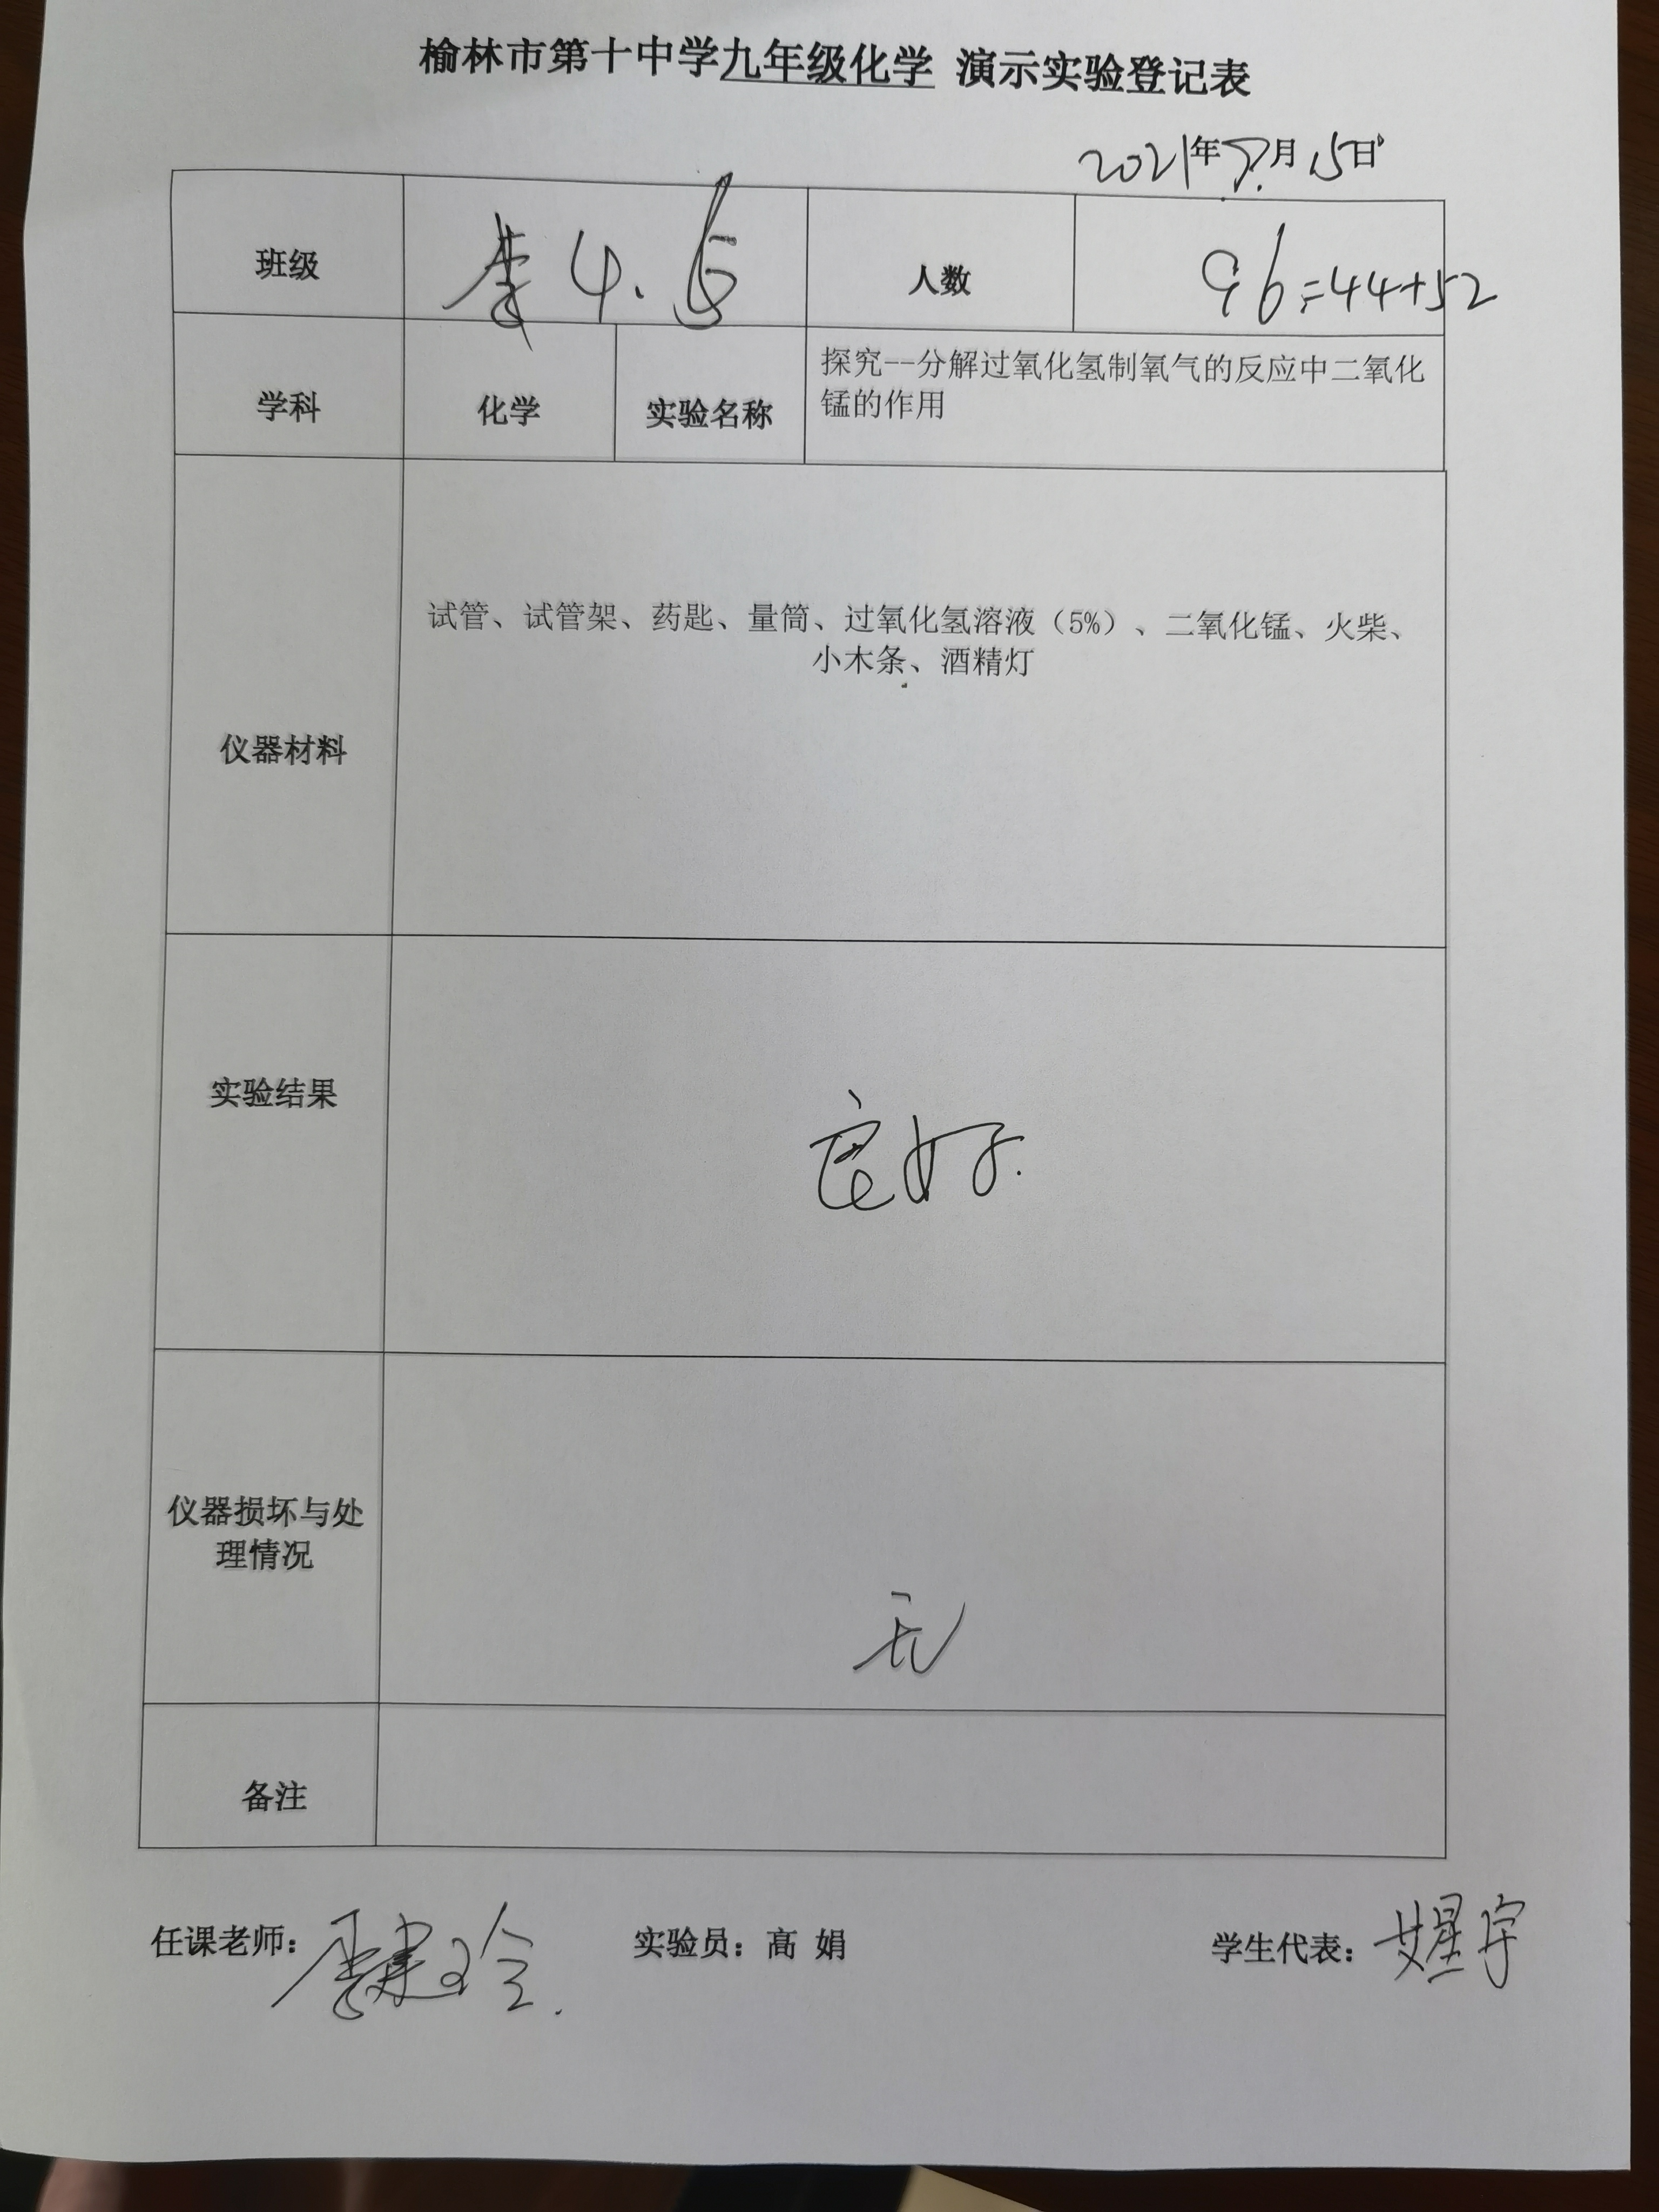 榆林市第十中学九年级化学 演示实验登记表
2021年9.月15日
班级 4. 人数 96=44+52
学科 化学 实验名称 探究--分解过氧化氢制氧气的反应中二氧化
锰的作用
仪器材料 试管、试管架、药匙、量筒、过氧化氢溶液（5%）、二氧化锰、火柴、
小木条、酒精灯
实验结果 良好.
仪器损坏与处
理情况 无
备注
任课老师： 实验员：高 娟 学生代表：艾星宇